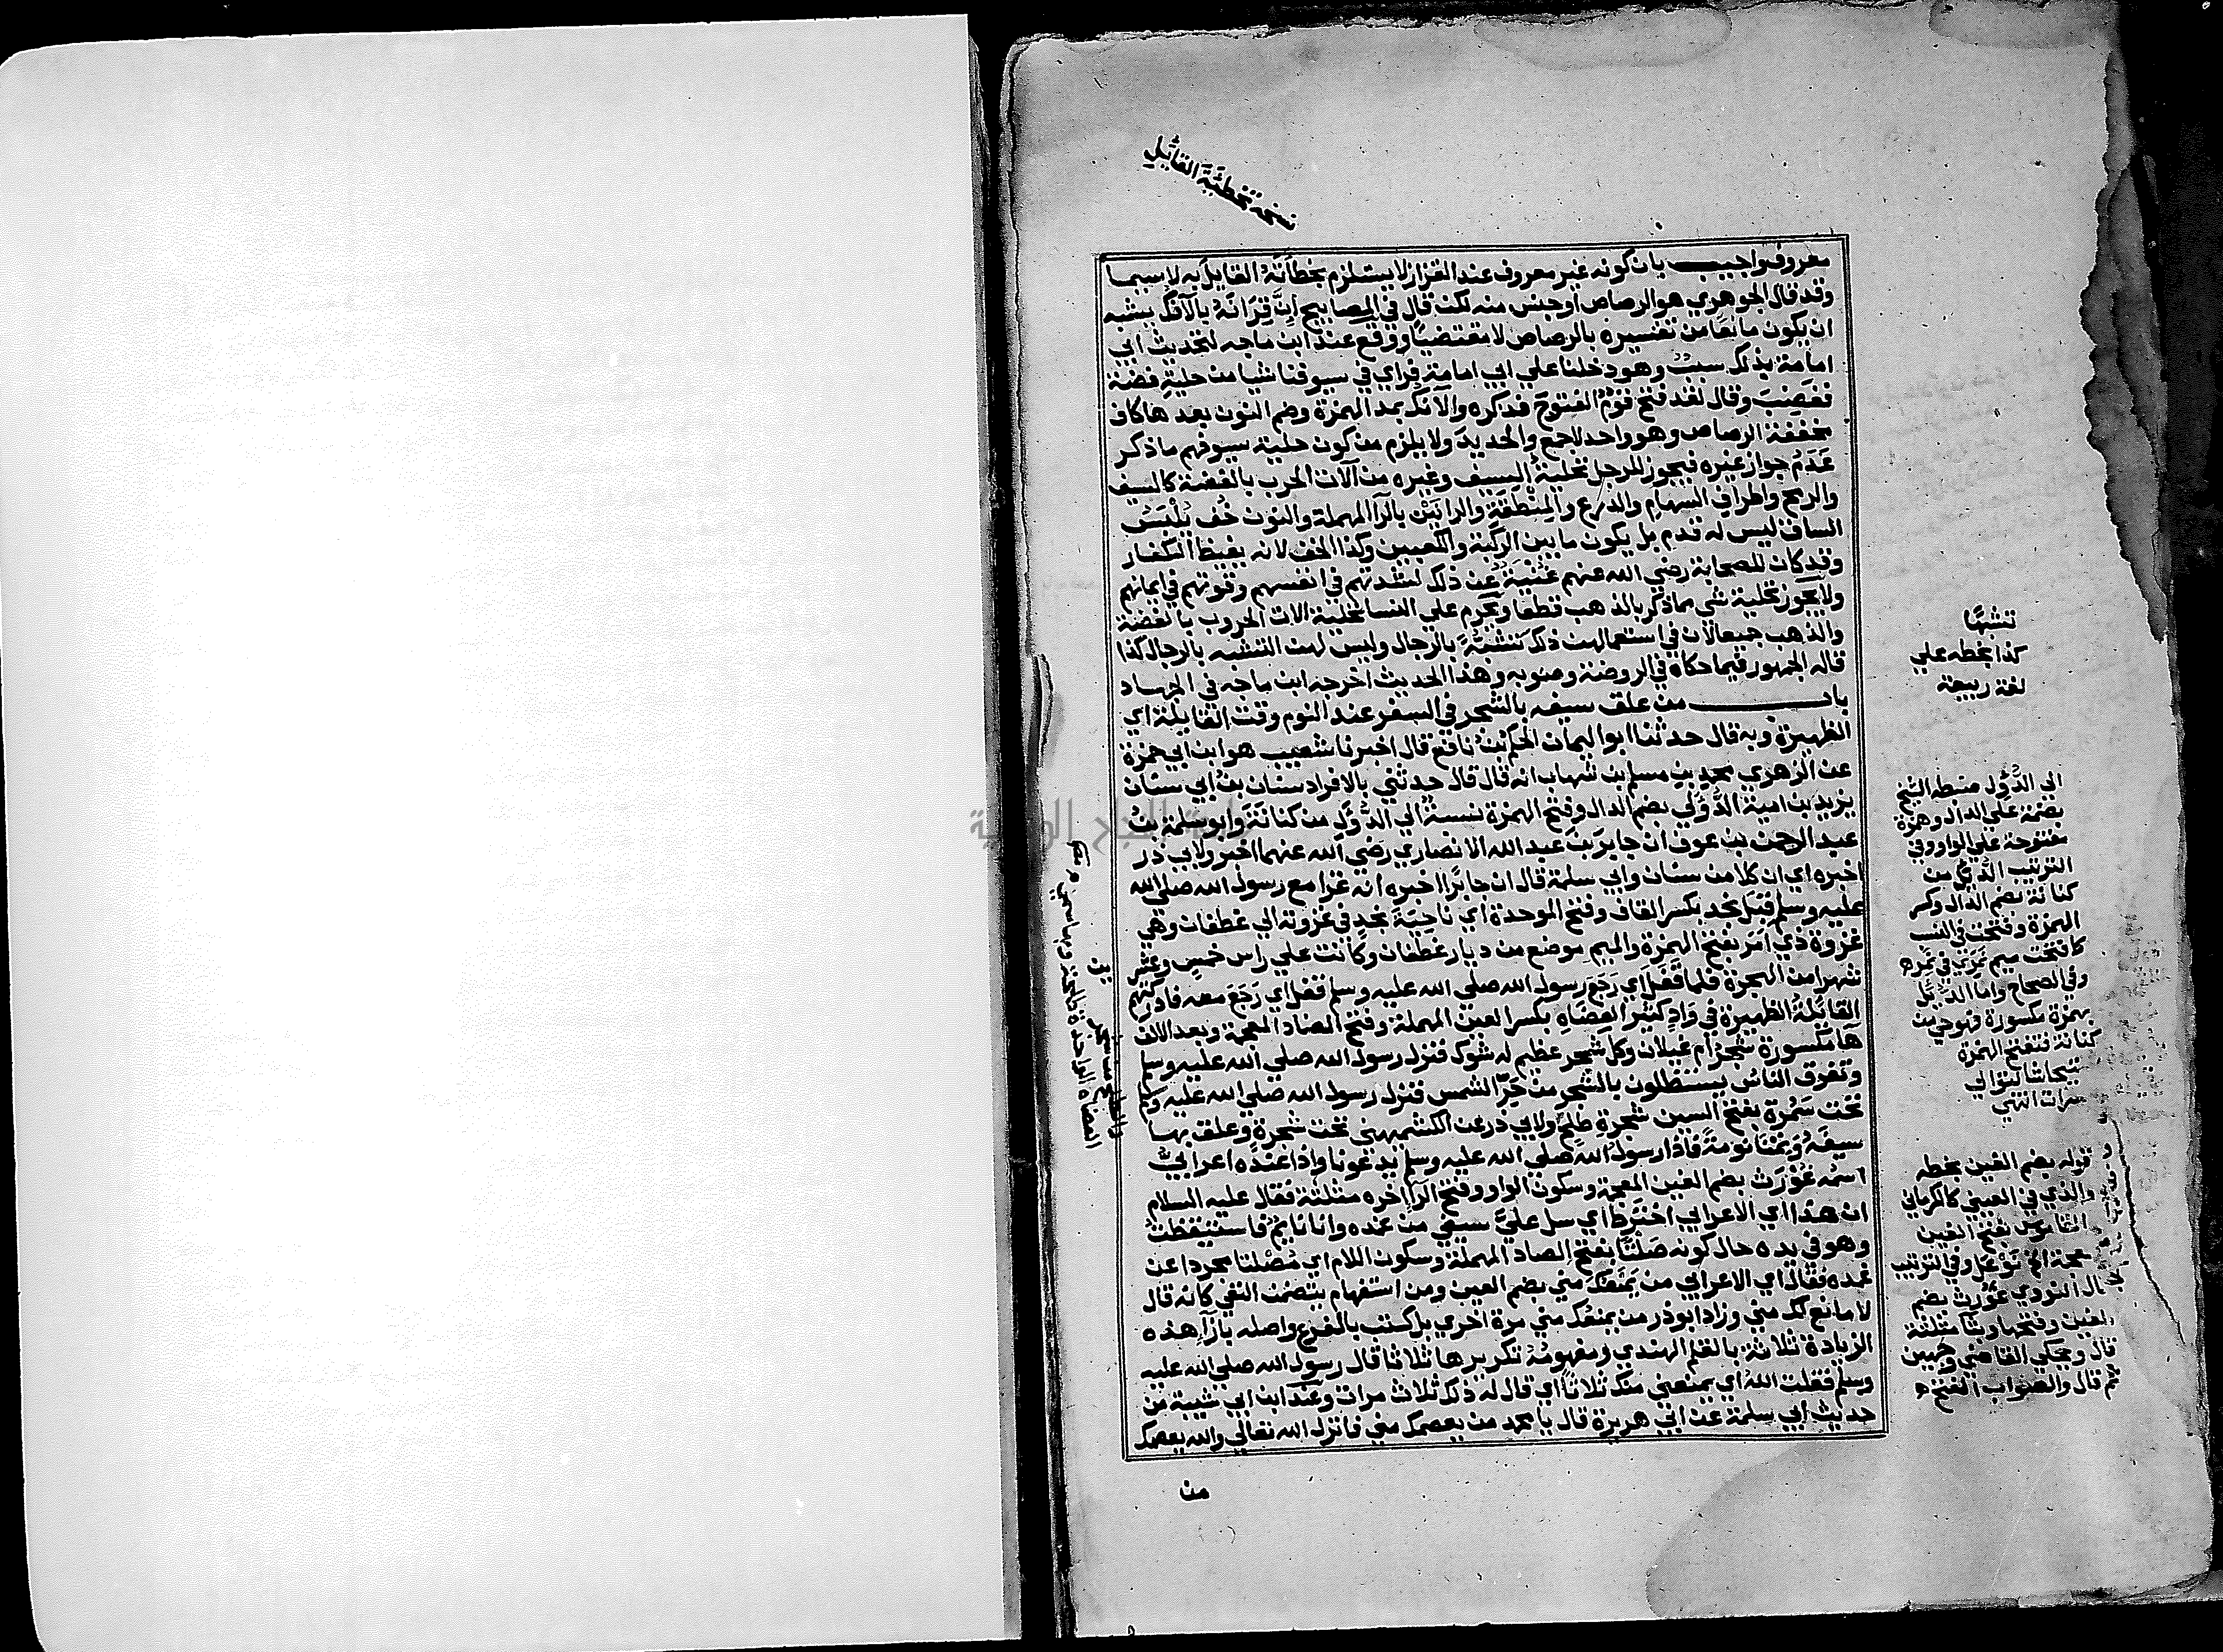 نسخة تخطئة القائل
معروف واجيب بان كونه غير معروف عند القزاز لا يستلزم تخطأنه القايل به لاسيما
وقد قال الجوهري هو الرصاص او جنس منه لكن قال في المصابيح ان قرانه بالآنك يشبه
ان يكون مانعا من تفسيره بالرصاص لا مقتضيا ووقع عند ابن ماجه لتحديث ابي
امامة بذلك سبب وهو دخلنا علي ابي امامة فراي في سيوفنا شيا من حلية فضة
فغضب وقال لقد فتح قوم الفتوح فذكره والآنك بمد الهمزة وضم النون بعدها كاف
مخففة الرصاص وهو واحد لاجمع والحديد ولا يلزم من كون حلية سيوفهم ما ذكر
عدم جواز غيره فيجوز للرجل تحلية السيف وغيره من آلات الحرب بالفضة كالسيف
والرمح واطراف السهام والدرع والمنطقة والرانين بالرا المهملة والنون خف يلبس
الساق ليس له قدم بل يكون ما بين الركبة والكعبين وكذا الخف لانه يغيظ الكفار
وقد كان للصحابة رضي الله عنهم غنية عن ذلك لشدتهم في انفسهم وقوتهم في ايمانهم
ولا يجوز تحلية شي مما ذكر بالذهب قطعا ويحرم علي النسا تحلية الات الحروب بالفضة
والذهب جميعا لان في استعمالهن ذلك تشبه بالرجال وليس لهن التشبه بالرجال كذا
قاله الجمهور فيما حكاه في الروضة وصوبه وهذا الحديث اخرجه ابن ماجه في الجهاد
باب من علق سيفه بالشجر في السفر عند النوم وقت القايلة اي
الظهيرة وبه قال حدثنا ابو اليمان الحكم بن نافع قال اخبرنا شعيب هو ابن ابي حمزة
عن الزهري محمد بن مسلم بن شهاب انه قال قال حدثني بالافراد سنان بن ابي سنان
يزيد بن امية الدؤلي بضم الدال وفتح الهمزة نسبة الي الدؤل من كنانة وابو سلمة بن
عبد الرحمن بن عوف ان جابر بن عبد الله الانصاري رضي الله عنهما اخبر ولابي ذر
اخبره اي ان كلا من سنان وابي سلمة قال ان جابرا اخبره انه غزا مع رسول الله صلي الله
عليه وسلم قبل نجد بكسر القاف وفتح الموحدة اي ناحية نجد في غزوته الي غطفان وهي
غزوة ذي امر بفتح الهمزة والميم موضع من ديار غطفان وكانت علي راس خمس وعشرين
شهرا من الهجرة فلما قفل اي رجع رسول الله صلي الله عليه وسلم قفل اي رجع معه فادركتهم
القائلة الظهيرة في واد كثير العضاه بكسر العين المهملة وفتح الضاد المعجمة وبعد الالف
ها مكسورة شجر ام غيلان وكل شجر عظيم له شوك فنزل رسول الله صلي الله عليه وسلم
وتفرق الناس يستظلون بالشجر من حر الشمس فنزل رسول الله صلي الله عليه وسلم
تحت سمرة بفتح السين شجرة طلح ولابي ذر عن الكشميهني تحت شجرة وعلق بها
سيفه ونمنا نومة فاذا رسول الله صلي الله عليه وسلم يدعونا واذا عنده اعرابي
اسمه غورث بضم الغين المعجمة وسكون الواو وفتح الرا اخره مثلثة فقال عليه السلام
ان هذا اي الاعرابي اخترط اي سل علي سيفي من غمده وانا نايم فاستيقظت
وهو في يده حال كونه صلتا بفتح الصاد المهملة وسكون اللام اي مصلتا مجردا عن
غمده فقال اي الاعرابي من يمنعك مني بضم العين ومن استفهام يتضمن النفي كانه قال
لا مانع لك مني وزاد ابو ذر من يمنعك مني مرة اخري بل كتب بالفرع واصله بازا هذه
الزيادة ثلاثة بالقلم الهندي ومفهومه تكريرها ثلاثا قال رسول الله صلي الله عليه
وسلم فقلت الله اي يمنعني منك ثلاثا اي قال له ذلك ثلاث مرات وعند ابن ابي شيبة من
حديث ابي سلمة عن ابي هريرة قال يا محمد من يعصمك مني فانزل الله تعالي والله يعصمك
من
تشبها
كذا بخطه علي
لغة ربيعة
الي الدؤل ضبطه الشيخ
بضمة علي الدال وهمزة
مفتوحة علي الواو وفي
الترتيب الدؤلي من
كنانة بضم الدال وكسر
الهمزة وفتحت في النسب
كما فتحت ميم نمري في نمره
وفي الصحاح واما الدئل
بهمزة مكسورة فهو حي من
كنانة فتفتح الهمزة
لتوالي
الكسرات انتهي
قوله بضم الغين بخطه
والذي في العيني كالكرماني
بفتح الغين
وفي الترتيب
قال النووي غورث بضم
الغين وفتحها وبثا مثلثة
قال وحكي القاضي وجهين
ثم قال والصواب الفتح